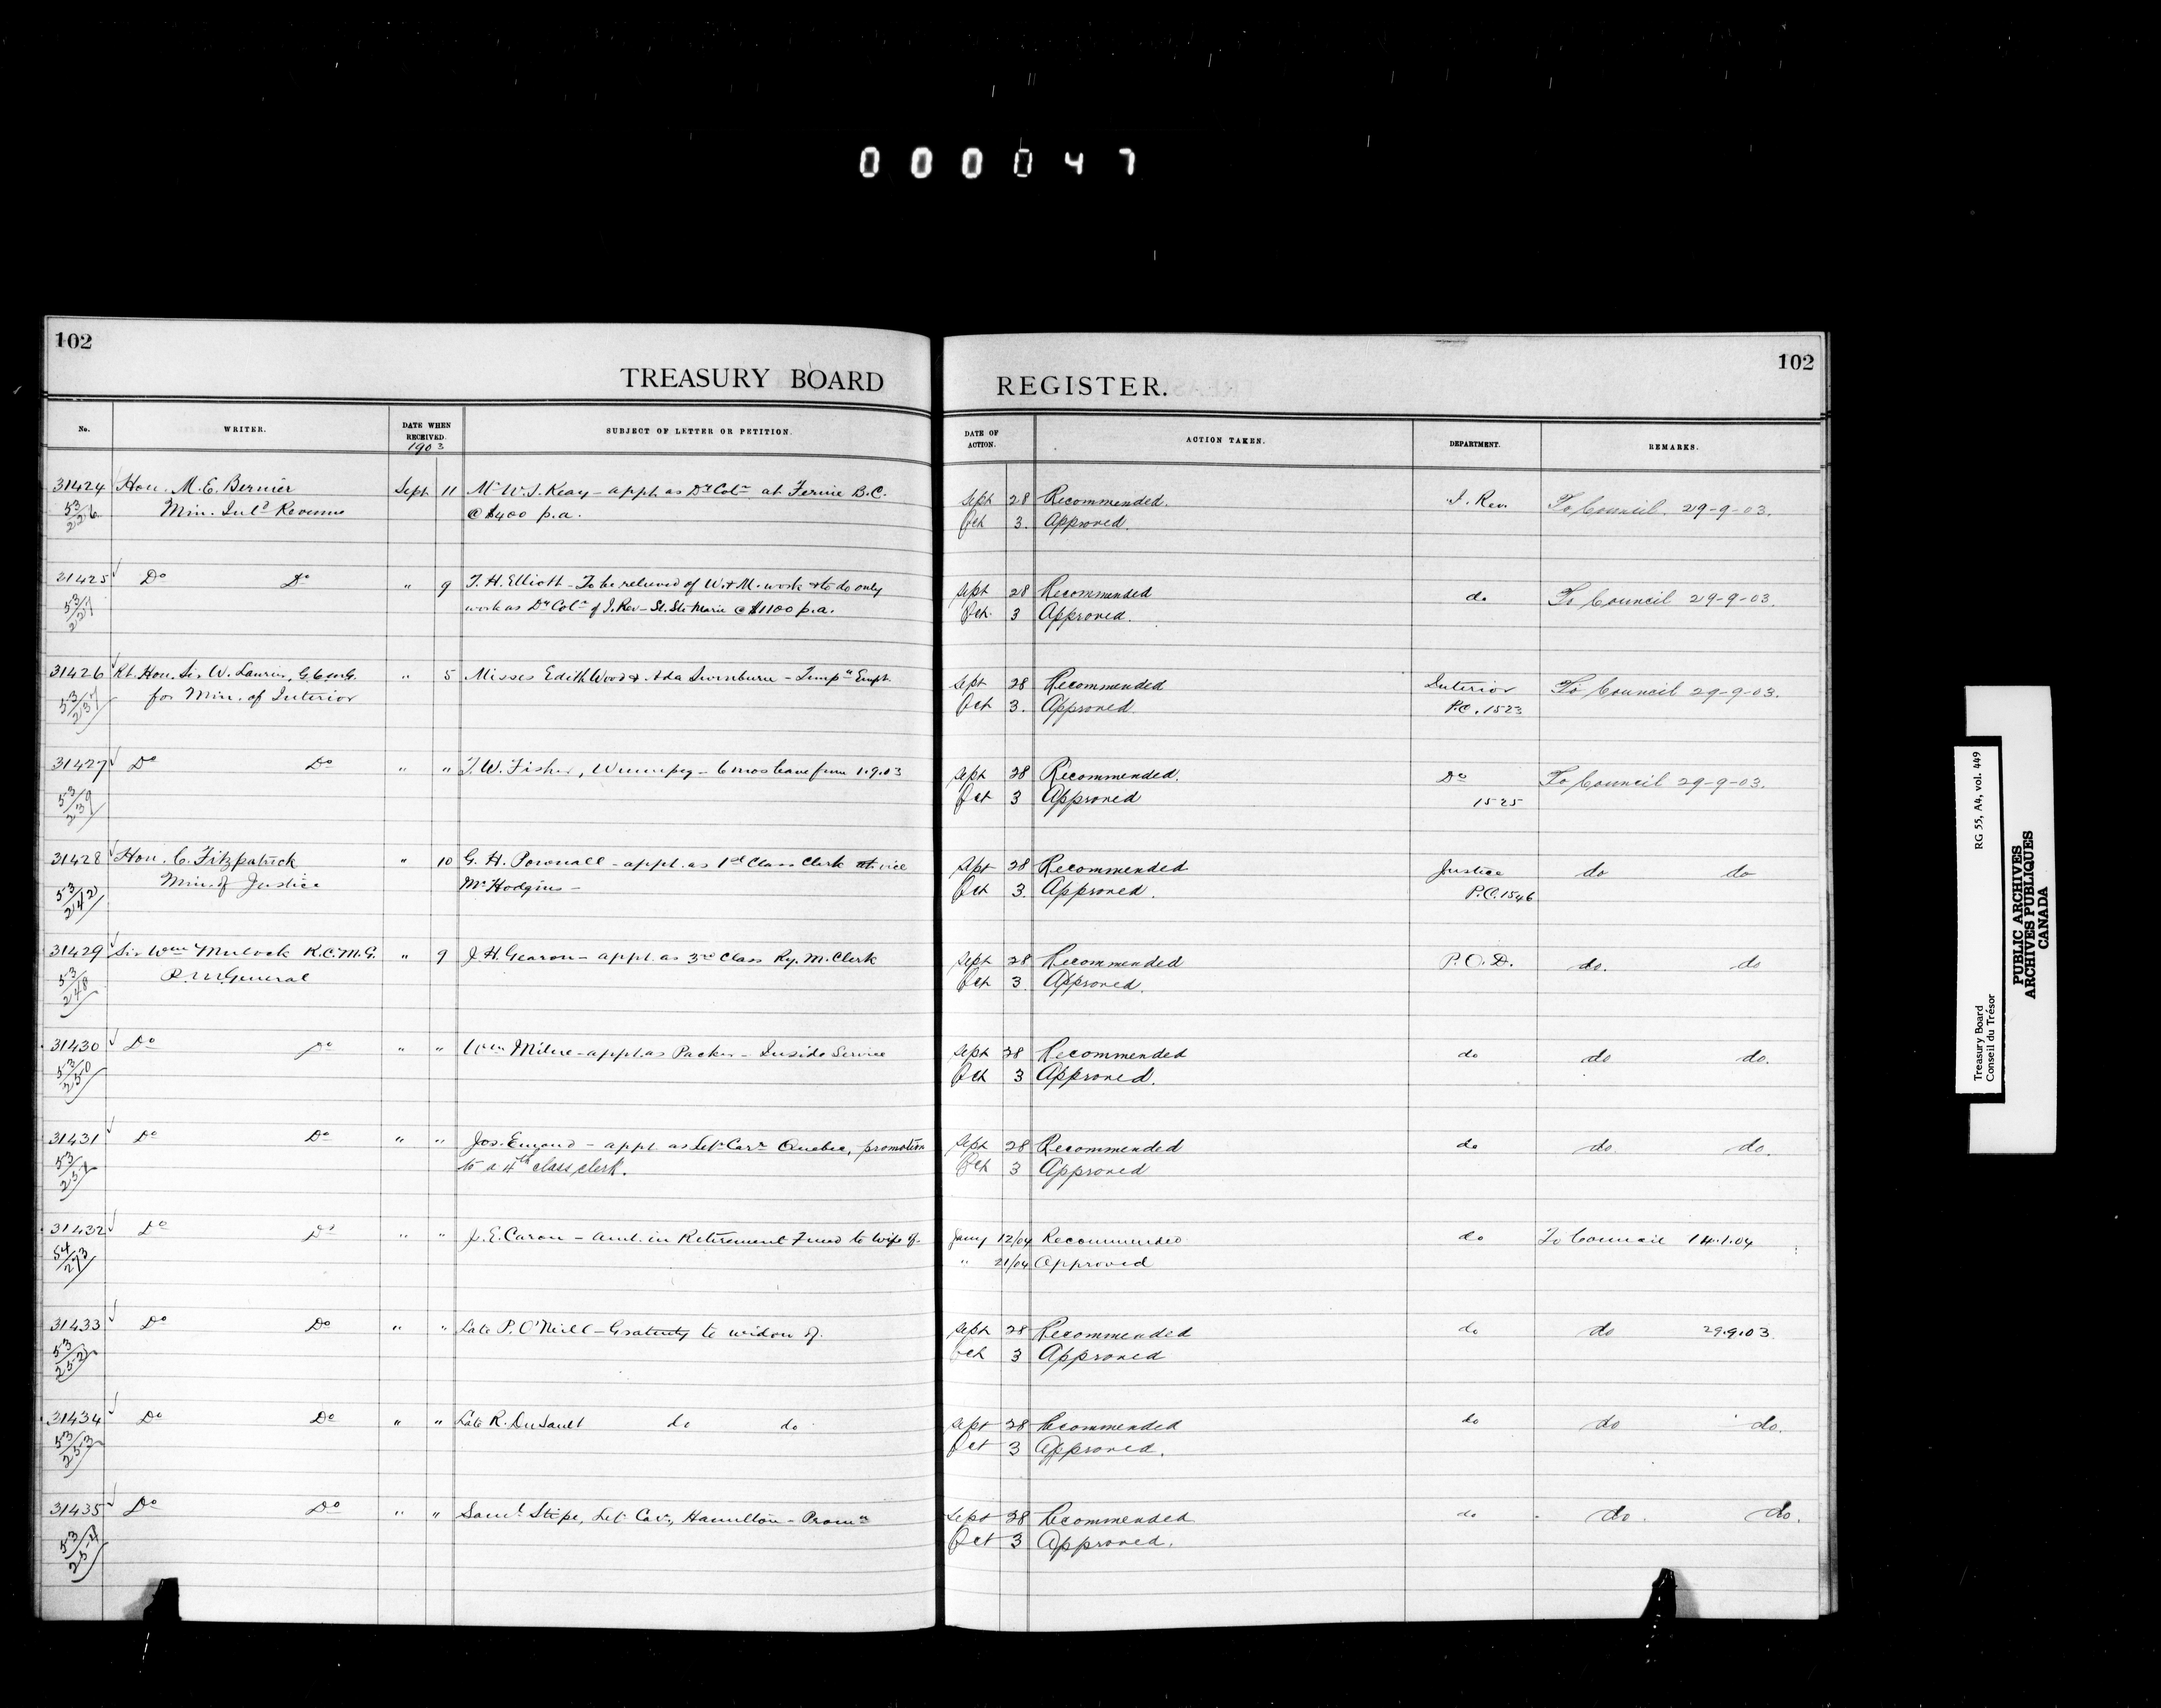 000047
102
TREASURY BOARD
No. WRITER. DATE WHEN RECEIVED. SUBJECT OF LETTER OR PETITION.
1903
31424 Hon. M. E. Bernier Sept 11 Mr W. J. Keay - appt. as Dy Colr at Fernie B.C.
53/226 Min. Inld Revenue @ $400 p.a.
21425 Do Do " 9 T. H. Elliott - To be relieved of W. & M. work & to do only
53/227 work as Dy Colr of I. Rev - St. Ste Marie @ $1100 p.a.
31426 Rt. Hon. Sir W. Laurier, G.C.M.G. " 5 Misses Edith Wood & Ada Swinburn - Tempy Empt.
53/237 for Min. of Interior
31427 Do Do " " T. W. Fisher, Winnipeg - 6 mos leave from 1.9.03
53/239
31428 Hon. C. Fitzpatrick " 10 G. H. Pownall - appt. as 1st Class Clerk at vice
53/242 Min. of Justice Mr Hodgins -
31429 Sir Wm Mulock K.C.M.G. " 9 J. H. Gearon - appt. as 3rd Class Ry. M. Clerk
53/248 P. M. General
31430 Do Do " " Wm Milne - appt. as Packer - Inside Service
53/250
31431 Do Do " " Jos. Emond - appt. as Letr Carr Quebec, promotion
53/251 to a 4th class clerk.
31432 Do Do " " J. E. Caron - Amt. in Retirement Fund to wife of.
54/273
31433 Do Do " " Late P. O'Neill - Gratuity to widow of.
53/252
31434 Do Do " " Late R. Dusault do do
53/253
31435 Do Do " " Saml Stipe, Letr Carr, Hamilton - Promn
53/254
102
REGISTER.
DATE OF ACTION. ACTION TAKEN. DEPARTMENT. REMARKS.
Sept 28 Recommended. I. Rev. To Council. 29-9-03.
Oct 3. Approved.
Sept 28 Recommended do To Council 29-9-03.
Oct. 3 Approved.
Sept 28 Recommended Interior To Council 29-9-03.
Oct 3. Approved. P.C. 1523
Sept 28 Recommended. Do To Council 29-9-03.
Oct 3 Approved 1525
Sept 28 Recommended Justice do do
Oct 3. Approved. P.C. 1546
Sept 28 Recommended P.O.D. do. do
Oct 3. Approved.
Sept 28 Recommended do do do.
Oct 3 Approved.
Sept 28 Recommended do do. do.
Oct 3 Approved
Jany 12/04 Recommended do To Council 14.1.04
" 21/04 Approved
Sept 28 Recommended do do 29.9.03
Oct 3 Approved
Sept 28 Recommended do do do.
Oct 3 Approved.
Sept 28 Recommended do do. do.
Oct 3 Approved.
Treasury Board RG 55, A4, vol. 449
Conseil du Trésor
PUBLIC ARCHIVES
ARCHIVES PUBLIQUES
CANADA